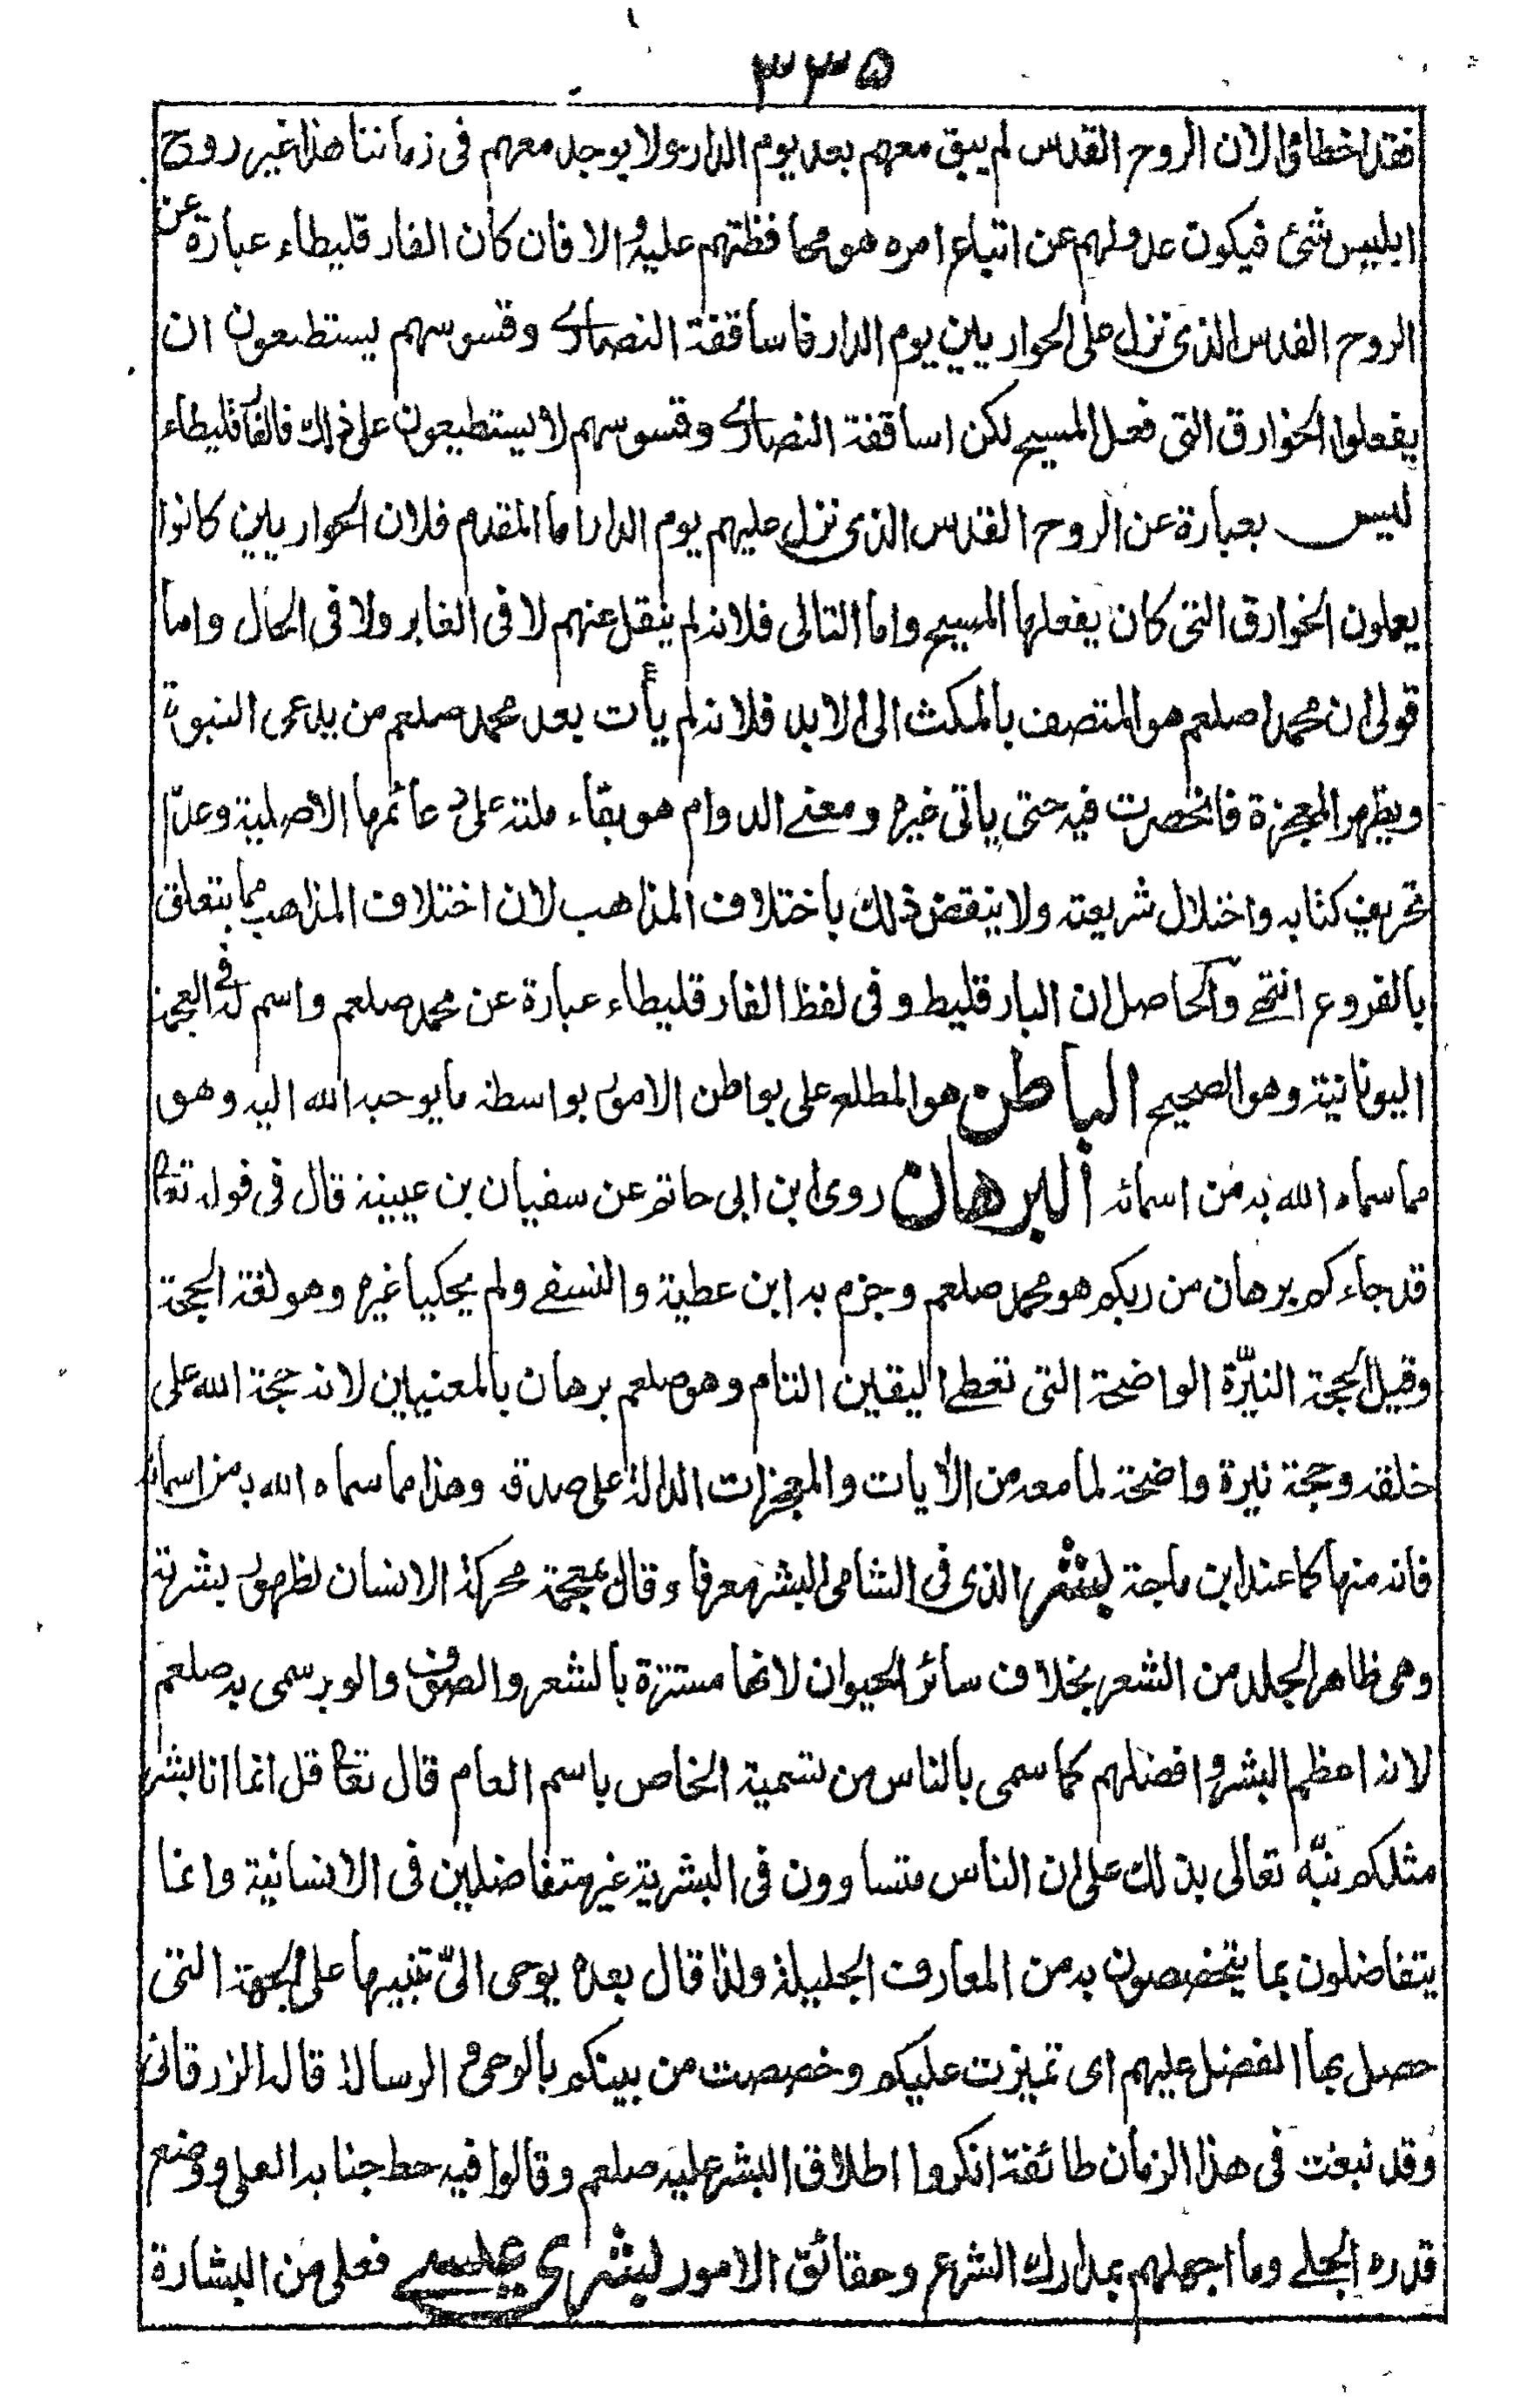 ٣٣۵
فقد اخطاؤا لان الروح القدس لم يبق معهم بعد يوم الدار ولا يوجد معهم فى زماننا هذا غير روح
ابليس شئ فيكون عدولهم عن اتباع امره هو محافظتهم عليه والا فان كان الفارقليطاء عبارة عن
الروح القدس الذى نزل على الحواريين يوم الدار فاساقفة النصارى وقسوسهم يستطيعون ان
يفعلوا الخوارق التى فعل المسيح لكن اساقفة النصارى وقسوسهم لا يستطيعون على ذلك فالفارقليطاء
ليس بعبارة عن الروح القدس الذى نزل عليهم يوم الدار اما المقدم فلان الحواريين كانوا
يعملون الخوارق التى كان يفعلها المسيح واما التالى فلانه لم ينقل عنهم لا فى الغابر ولا فى الحال واما
قولى ان محمدا صلعم هو المتصف بالمكث الى الابد فلانه لم يأت بعد محمد صلعم من يدعى النبوة
ويظهر المعجزة فانحصرت فيه حتى ياتى غيره ومعنے الدوام هو بقاء ملته على دعائمها الاصلية وعدم
تحريف كتابه واختلال شريعته ولا ينتقض ذلك باختلاف المذاهب لان اختلاف المذاهب مما يتعلق
بالفروع انتهى والحاصل ان البارقليط وفى لفظ الفارقليطاء عبارة عن محمد صلعم واسم له فى العجمة
اليونانية وهو الصحيح الباطن هو المطلع على بواطن الامور بواسطة ما يوحيه الله اليه وهو
مما سماه الله به من اسمائه البرهان روى ابن ابى حاتم عن سفيان بن عيينة قال فى قوله تعا
قد جاءكم برهان من ربكم هو محمد صلعم وجزم به ابن عطية والنسفے ولم يحكيا غيره وهو لغة الحجة
وقيل الحجة النيّرة الواضحة التى تعطے اليقين التام وهو صلعم برهان بالمعنيين لانه حجة الله على
خلقه وحجة نيرة واضحة لما معه من الأيات والمعجزات الدالة على صدقه وهذا مما سماه الله به من اسمائه
فانه منها كما عند ابن ماجة بشر الذى فى الشامى البشر معرفا وقال بمعجمة محركة الانسان لظهور بشرته
وهى ظاهر الجلد من الشعر بخلاف سائر الحيوان لانها مستترة بالشعر والصوف والوبر سمى به صلعم
لانه اعظم البشر وافضلهم كما سمى بالناس من تسمية الخاص باسم العام قال تعا قل انما انا بشر
مثلكم نبّه تعالى بذلك على ان الناس متساوون فى البشرية غير متفاضلين فى الانسانية وانما
يتفاضلون بما يتخصصون به من المعارف الجليلة ولذا قال بعده يوحى الىّ تنبيها على الجهة التى
حصل بها الفضل عليهم اى تميزت عليكم وخصصت من بينكم بالوحى والرسالة قال الزرقانى
وقد نبغت فى هذا الزمان طائفة انكروا اطلاق البشر عليه صلعم وقالوا فيه حط جنابه العلى ووضع
قدره الجلے وما اجهلهم بمدارك الشرع وحقائق الامور بشرى عيسے فعلى من البشارة